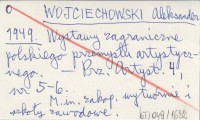 WOJCIECHOWSKI Aleksander
1949. Wystawy zagraniczne
polskiego przemysłu artystycz-
nego. — Prz. Artyst. 4,
nr 5-6.
M.in. zakop. wytwórnie i
szkoły zawodowe.